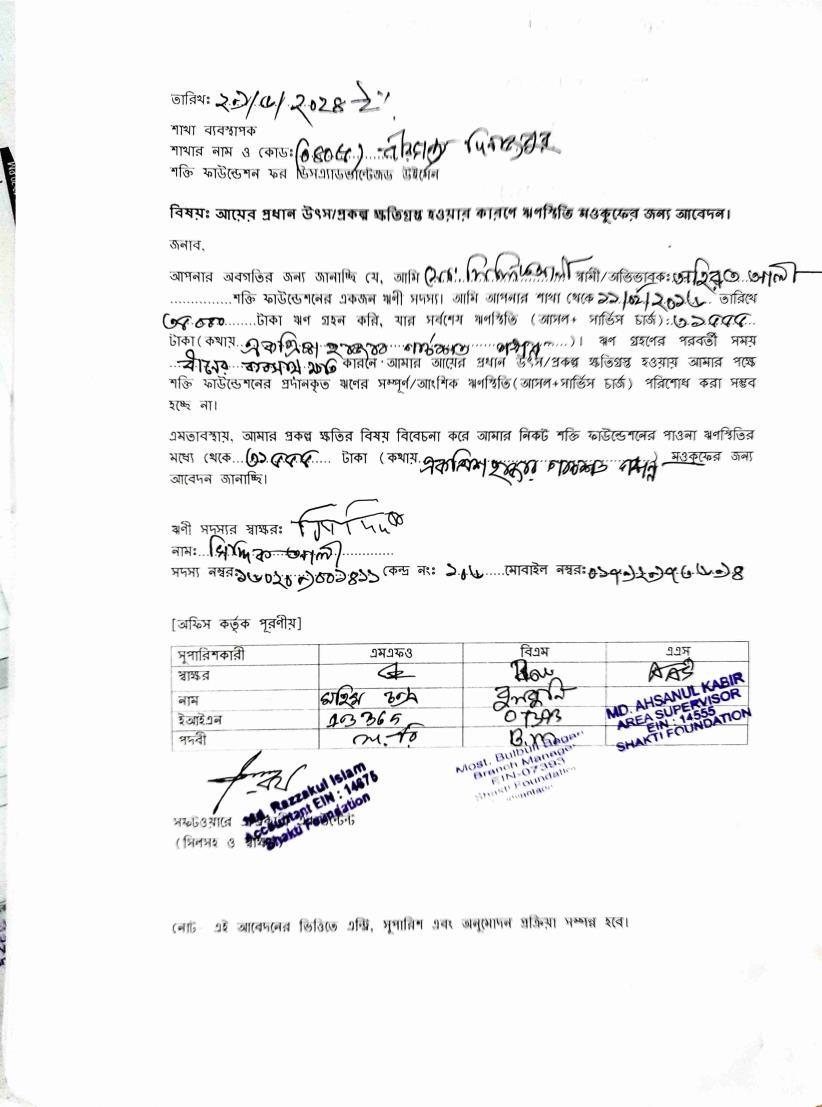 তারিখঃ ২৯/৫/২০২৪ ইং
শাখা ব্যবস্থাপক
শাখার নাম ও কোডঃ (0৪০৫)
শক্তি ফাউন্ডেশন ফর ডিসএ্যাডভান্টেজড উইমেন
বিষয়ঃ আয়ের প্রধান উৎস/প্রকল্প ক্ষতিগ্রস্ত হওয়ার কারণে ঋণস্থিতি মওকুফের জন্য আবেদন।
জনাব,
আপনার অবগতির জন্য জানাচ্ছি যে, আমি মোঃ সিদ্দিক আলী স্বামী/অভিভাবক: আলী
শক্তি ফাউন্ডেশনের একজন ঋণী সদস্য। আমি আপনার শাখা থেকে তারিখে
টাকা ঋণ গ্রহন করি, যার সর্বশেষ ঋণস্থিতি (আসল+ সার্ভিস চার্জ): ৩১৫৫৫
টাকা (কথায় একত্রিশ হাজার পাঁচশত পঞ্চান্ন)। ঋণ গ্রহণের পরবর্তী সময়
ব্যবসায় ক্ষতি কারনে আমার আয়ের প্রধান উৎস/প্রকল্প ক্ষতিগ্রস্ত হওয়ায় আমার পক্ষে
শক্তি ফাউন্ডেশনের প্রদানকৃত ঋণের সম্পূর্ণ/আংশিক ঋণস্থিতি(আসল+সার্ভিস চার্জ) পরিশোধ করা সম্ভব
হচ্ছে না।
এমতাবস্থায়, আমার প্রকল্প ক্ষতির বিষয় বিবেচনা করে আমার নিকট শক্তি ফাউন্ডেশনের পাওনা ঋণস্থিতির
মধ্যে থেকে ৩১৫৫৫ টাকা (কথায় একত্রিশ হাজার পাঁচশত পঞ্চান্ন) মওকুফের জন্য
আবেদন জানাচ্ছি।
ঋণী সদস্যর স্বাক্ষরঃ সিদ্দিক
নামঃ সিদ্দিক আলী
সদস্য নম্বরঃ কেন্দ্র নং: মোবাইল নম্বরঃ
[অফিস কর্তৃক পূরণীয়]
সুপারিশকারী এমএফও বিএম এএস
স্বাক্ষর
নাম বুলবুলি MD. AHSANUL KABIR
ইআইএন 07393 AREA SUPERVISOR
পদবী B.M EIN : 14555
SHAKTI FOUNDATION
Most. Bulbuli Began
Branch Manager
EIN-07393
Shakti Foundation
Md. Razzakul Islam
Accountant EIN : 14675
Shakti Foundation
সফটওয়ারে
(সিলসহ ও
নোট এই আবেদনের ভিত্তিতে এন্ট্রি, সুপারিশ এবং অনুমোদন প্রক্রিয়া সম্পন্ন হবে।